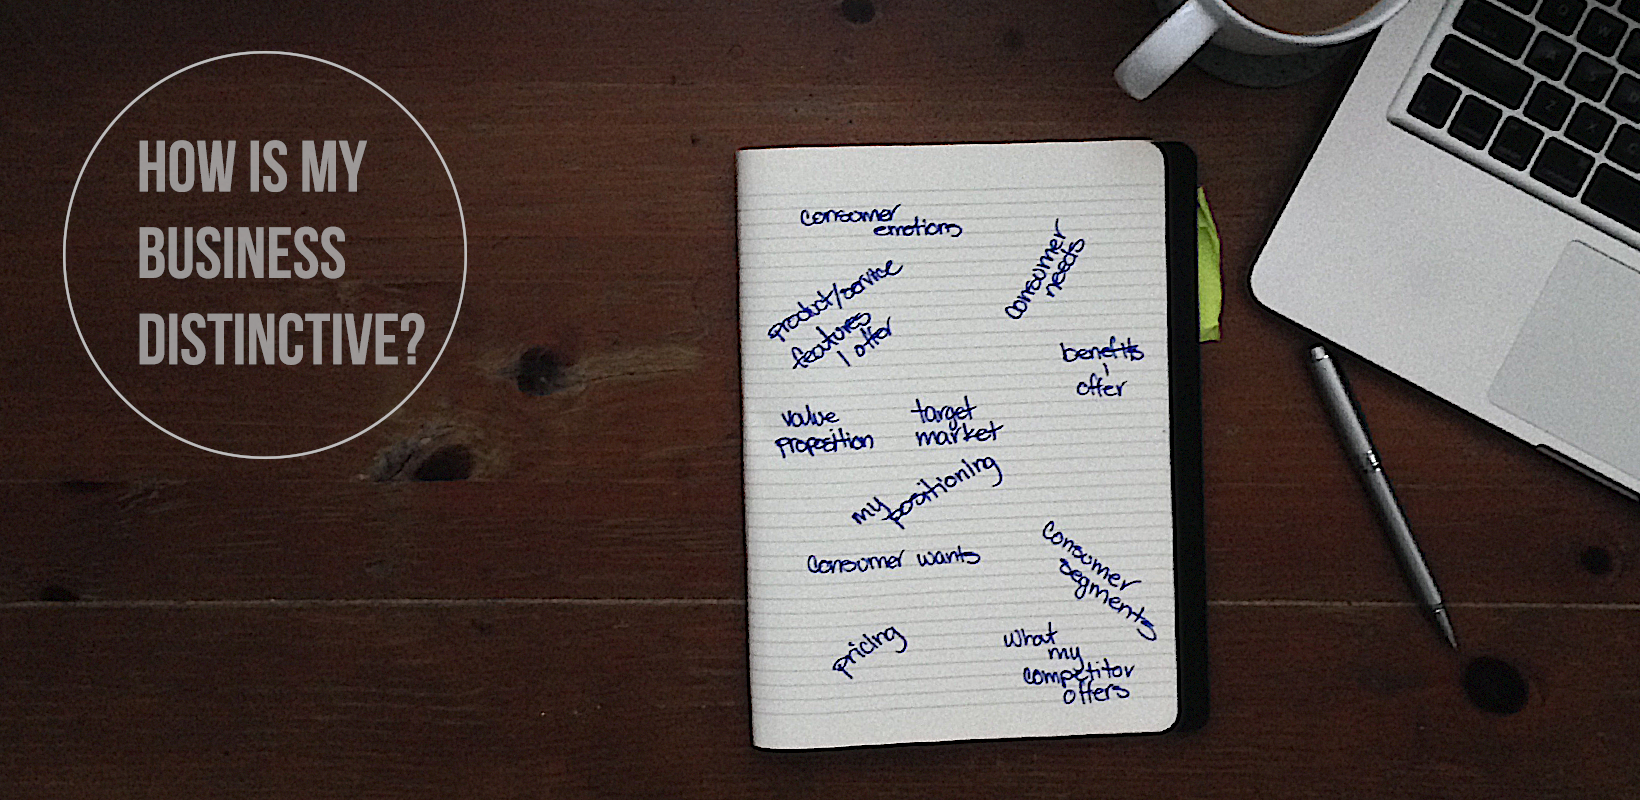 HOW IS MY
BUSINESS
DISTINCTIVE?
consumer
emotions
consumer
needs
product/service
features
I offer
benefits
I
offer
value
proposition
target
market
my positioning
consumer wants
consumer
segments
pricing
what
my
competitor
offers